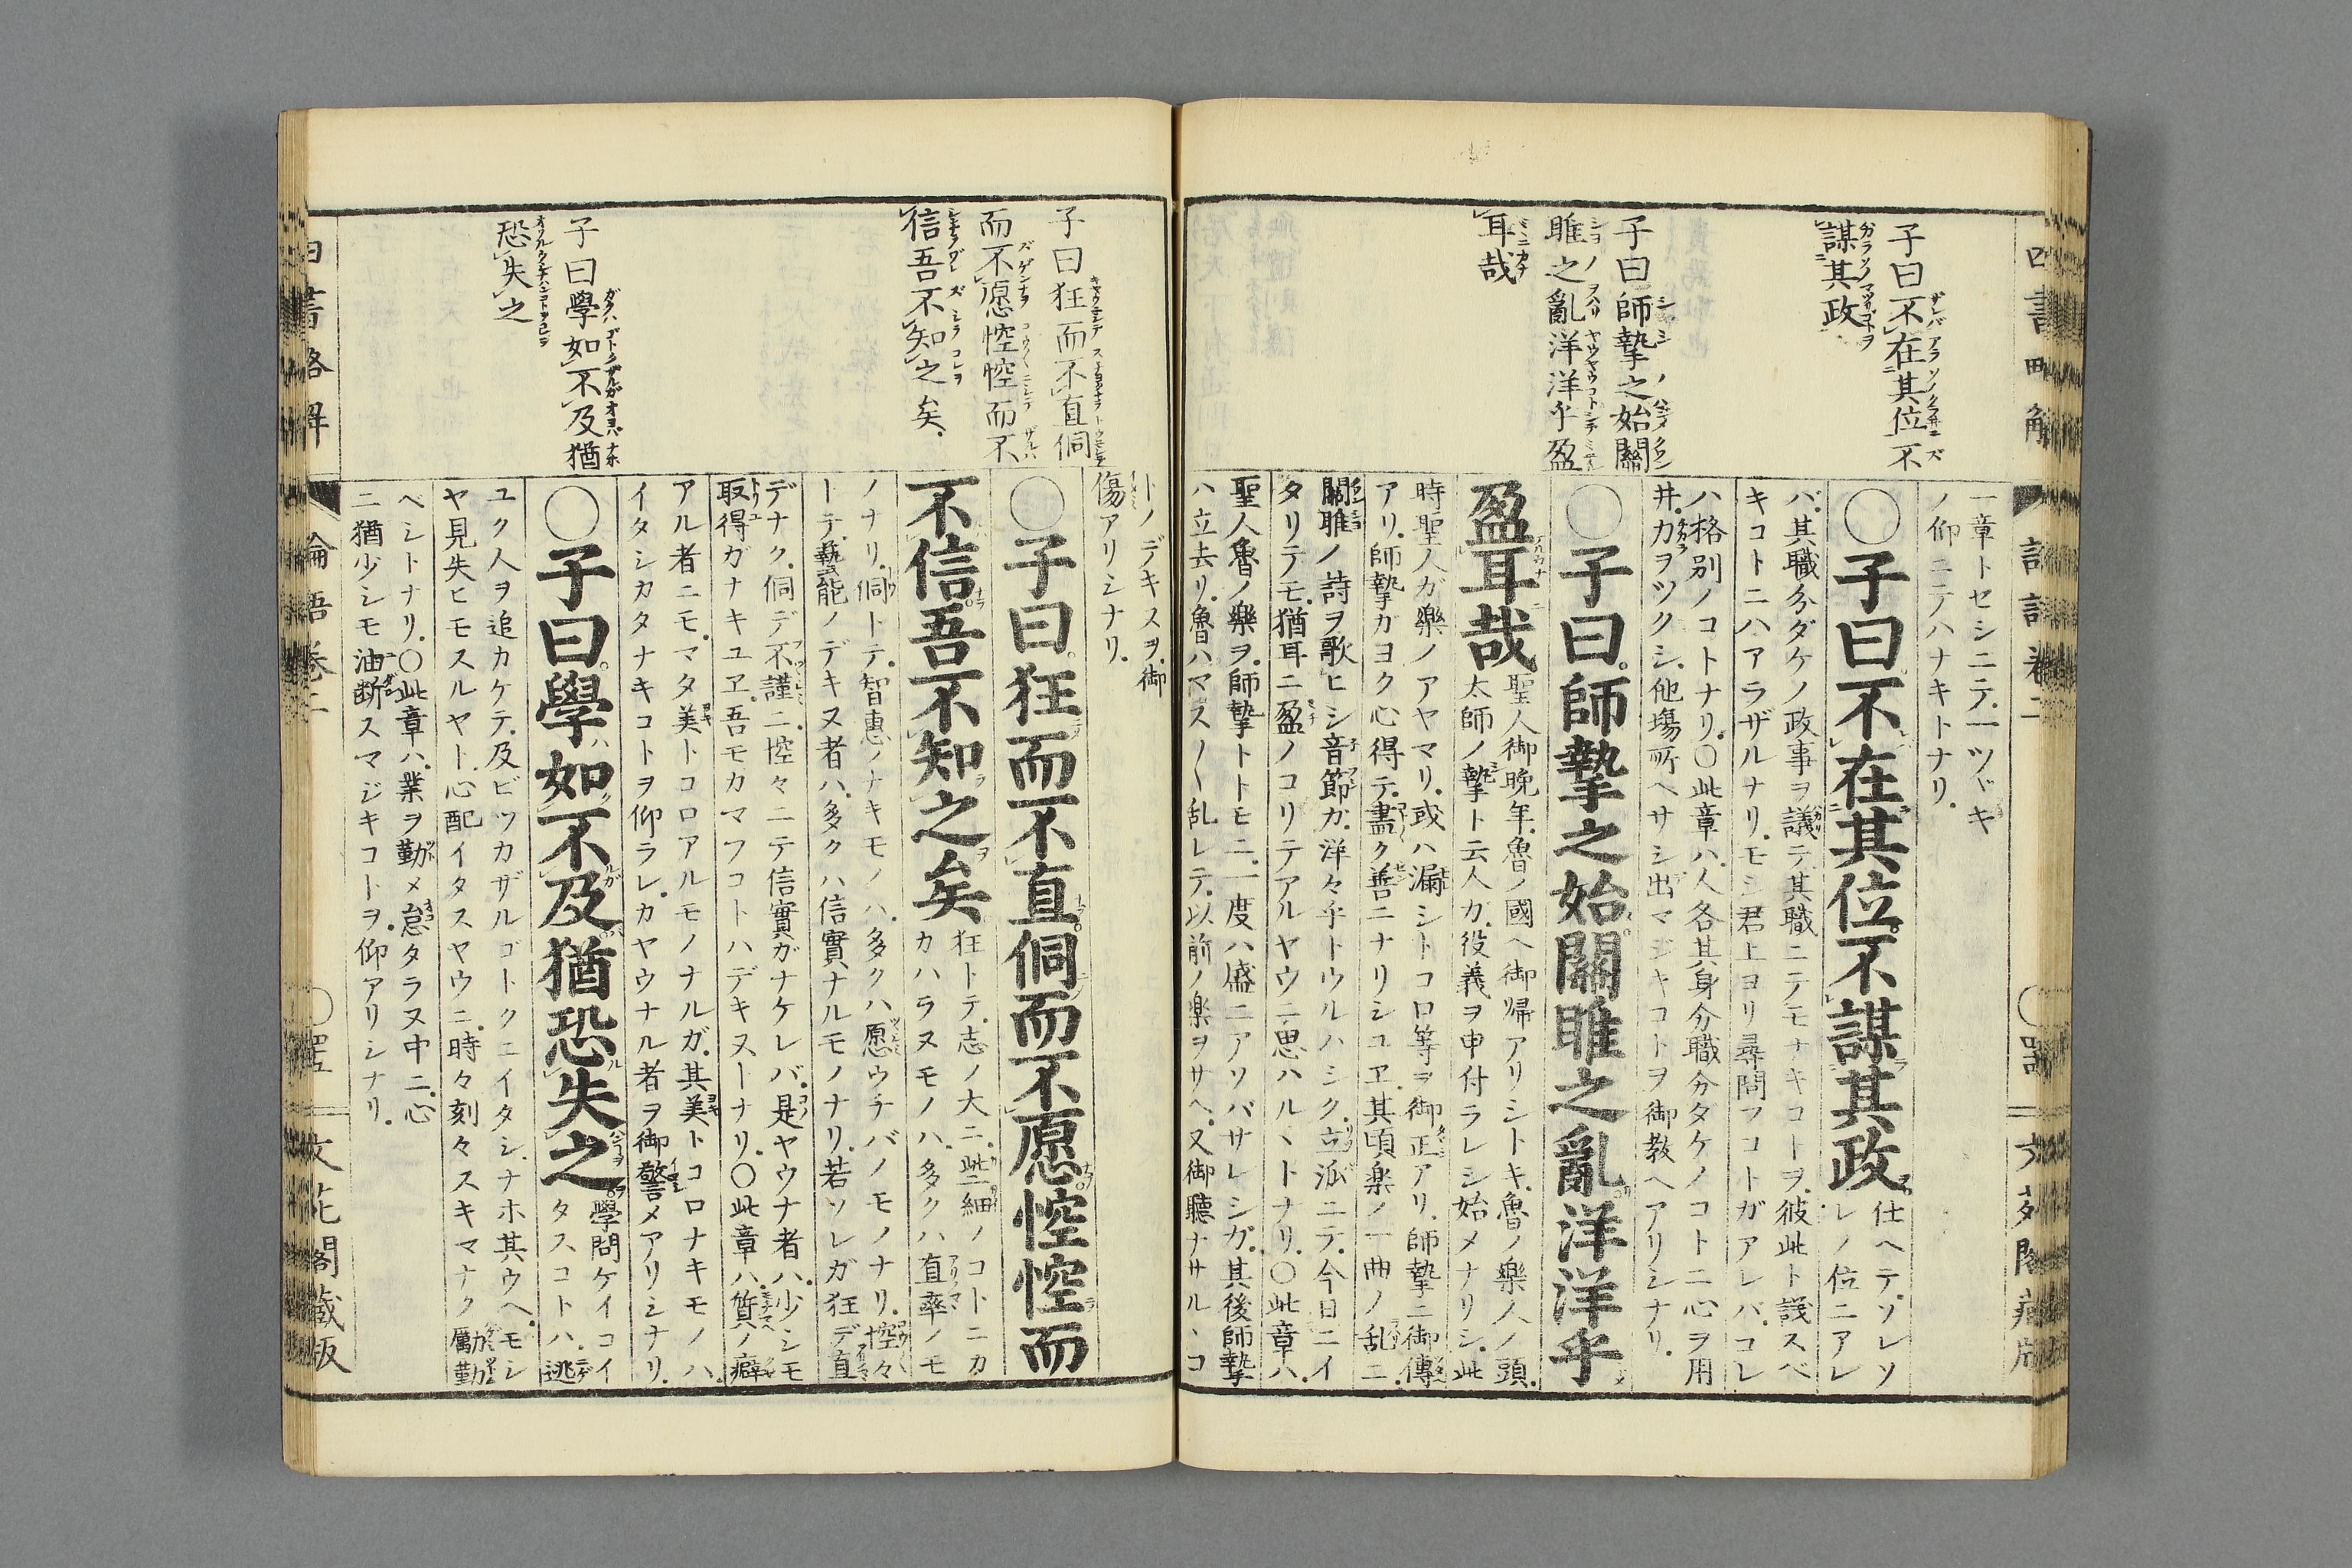 子曰不在其位不
謀其政
子曰師摯之始關
雎之亂洋洋乎盈
耳哉
一章トセシニテ一ツヾキ
ノ仰ニテハナキトナリ
○子曰不在其位不謀其政
仕ヘテソレソ
レノ位ニアレ
バ其職分ダケノ政事ヲ議テ其職ニテモナキコトヲ彼此ト議スベ
キコトニハアラザルナリモシ君上ヨリ尋問フコトガアレバコレ
ハ格別ノコトナリ○此章ハ人各其身分職分タケノコトニ心ヲ用
井力ヲツクシ他塲所ヘサシ出マジキコトヲ御教ヘアリシナリ
○子曰師摯之始關雎之亂洋洋乎
盈耳哉
聖人御晩年魯ノ國ヘ御帰アリシトキ魯ノ樂人ノ頭
太師ノ摯ト云人カ役義ヲ申付ラレシ始メナリシ此
時聖人ガ樂ノアヤマリ或ハ漏シトコロ等ヲ御正アリ師摯ニ御傳
アリ師摯カヨク心得テ盡ク善ニナリシユヱ其頃楽ノ一曲ノ乱ニ
關雎ノ詩ヲ歌ヒシ音節ガ洋々乎トウルハシク立派ニテ今日ニイ
タリテモ猶耳ニ盈ノコリテアルヤウニ思ハルヽトナリ○此章ハ
聖人魯ノ樂ヲ師摯トトモニ一度ハ盛ニアソバサレシガ其後師摯
ハ立去リ魯ハマス〱乱レテ以前ノ楽ヲサヘ又御聽ナサルヽコ
子曰狂而不直侗
而不愿悾悾而不
信吾不知之矣
子曰學如不及猶
恐失之
トノデキスヲ御
傷アリシナリ
○子曰狂而不直侗而不愿悾悾而
不信吾不知之矣
狂トテ志ノ大ニ些細ノコトニカ
カハラヌモノハ多クハ直率ノモ
ノナリ侗トテ智惠ノナキモノハ多クハ愿ウチバノモノナリ悾々
トテ藝能ノデキヌ者ハ多クハ信實ナルモノナリ若ソレガ狂デ直
デナク侗デ不謹ニ悾々ニテ信實ガナケレバ是ヤウナ者ハ少シモ
取得ガナキユヱ吾モカマフコトハデキヌーナリ○此章ハ質ノ癖
アル者ニモマタ美トコロアルモノナルガ其美トコロナキモノハ
イタシカタナキコトヲ仰ラレカヤウナル者ヲ御警メアリシナリ
○子曰學如不及猶恐失之
學問ケイコイ
タスコトハ逃
ユク人ヲ追カケテ及ビツカザルゴトクニイタシナホ其ウヘモシ
ヤ見失ヒモスルヤト心配イタスヤウニ時々刻々スキマナク勵勤
ベシトナリ○此章ハ業ヲ勤メ怠タラヌ中ニ心
ニ猶少シモ油断スマジキコトヲ仰アリシナリ
四書略解
論語卷二
文花閣藏版